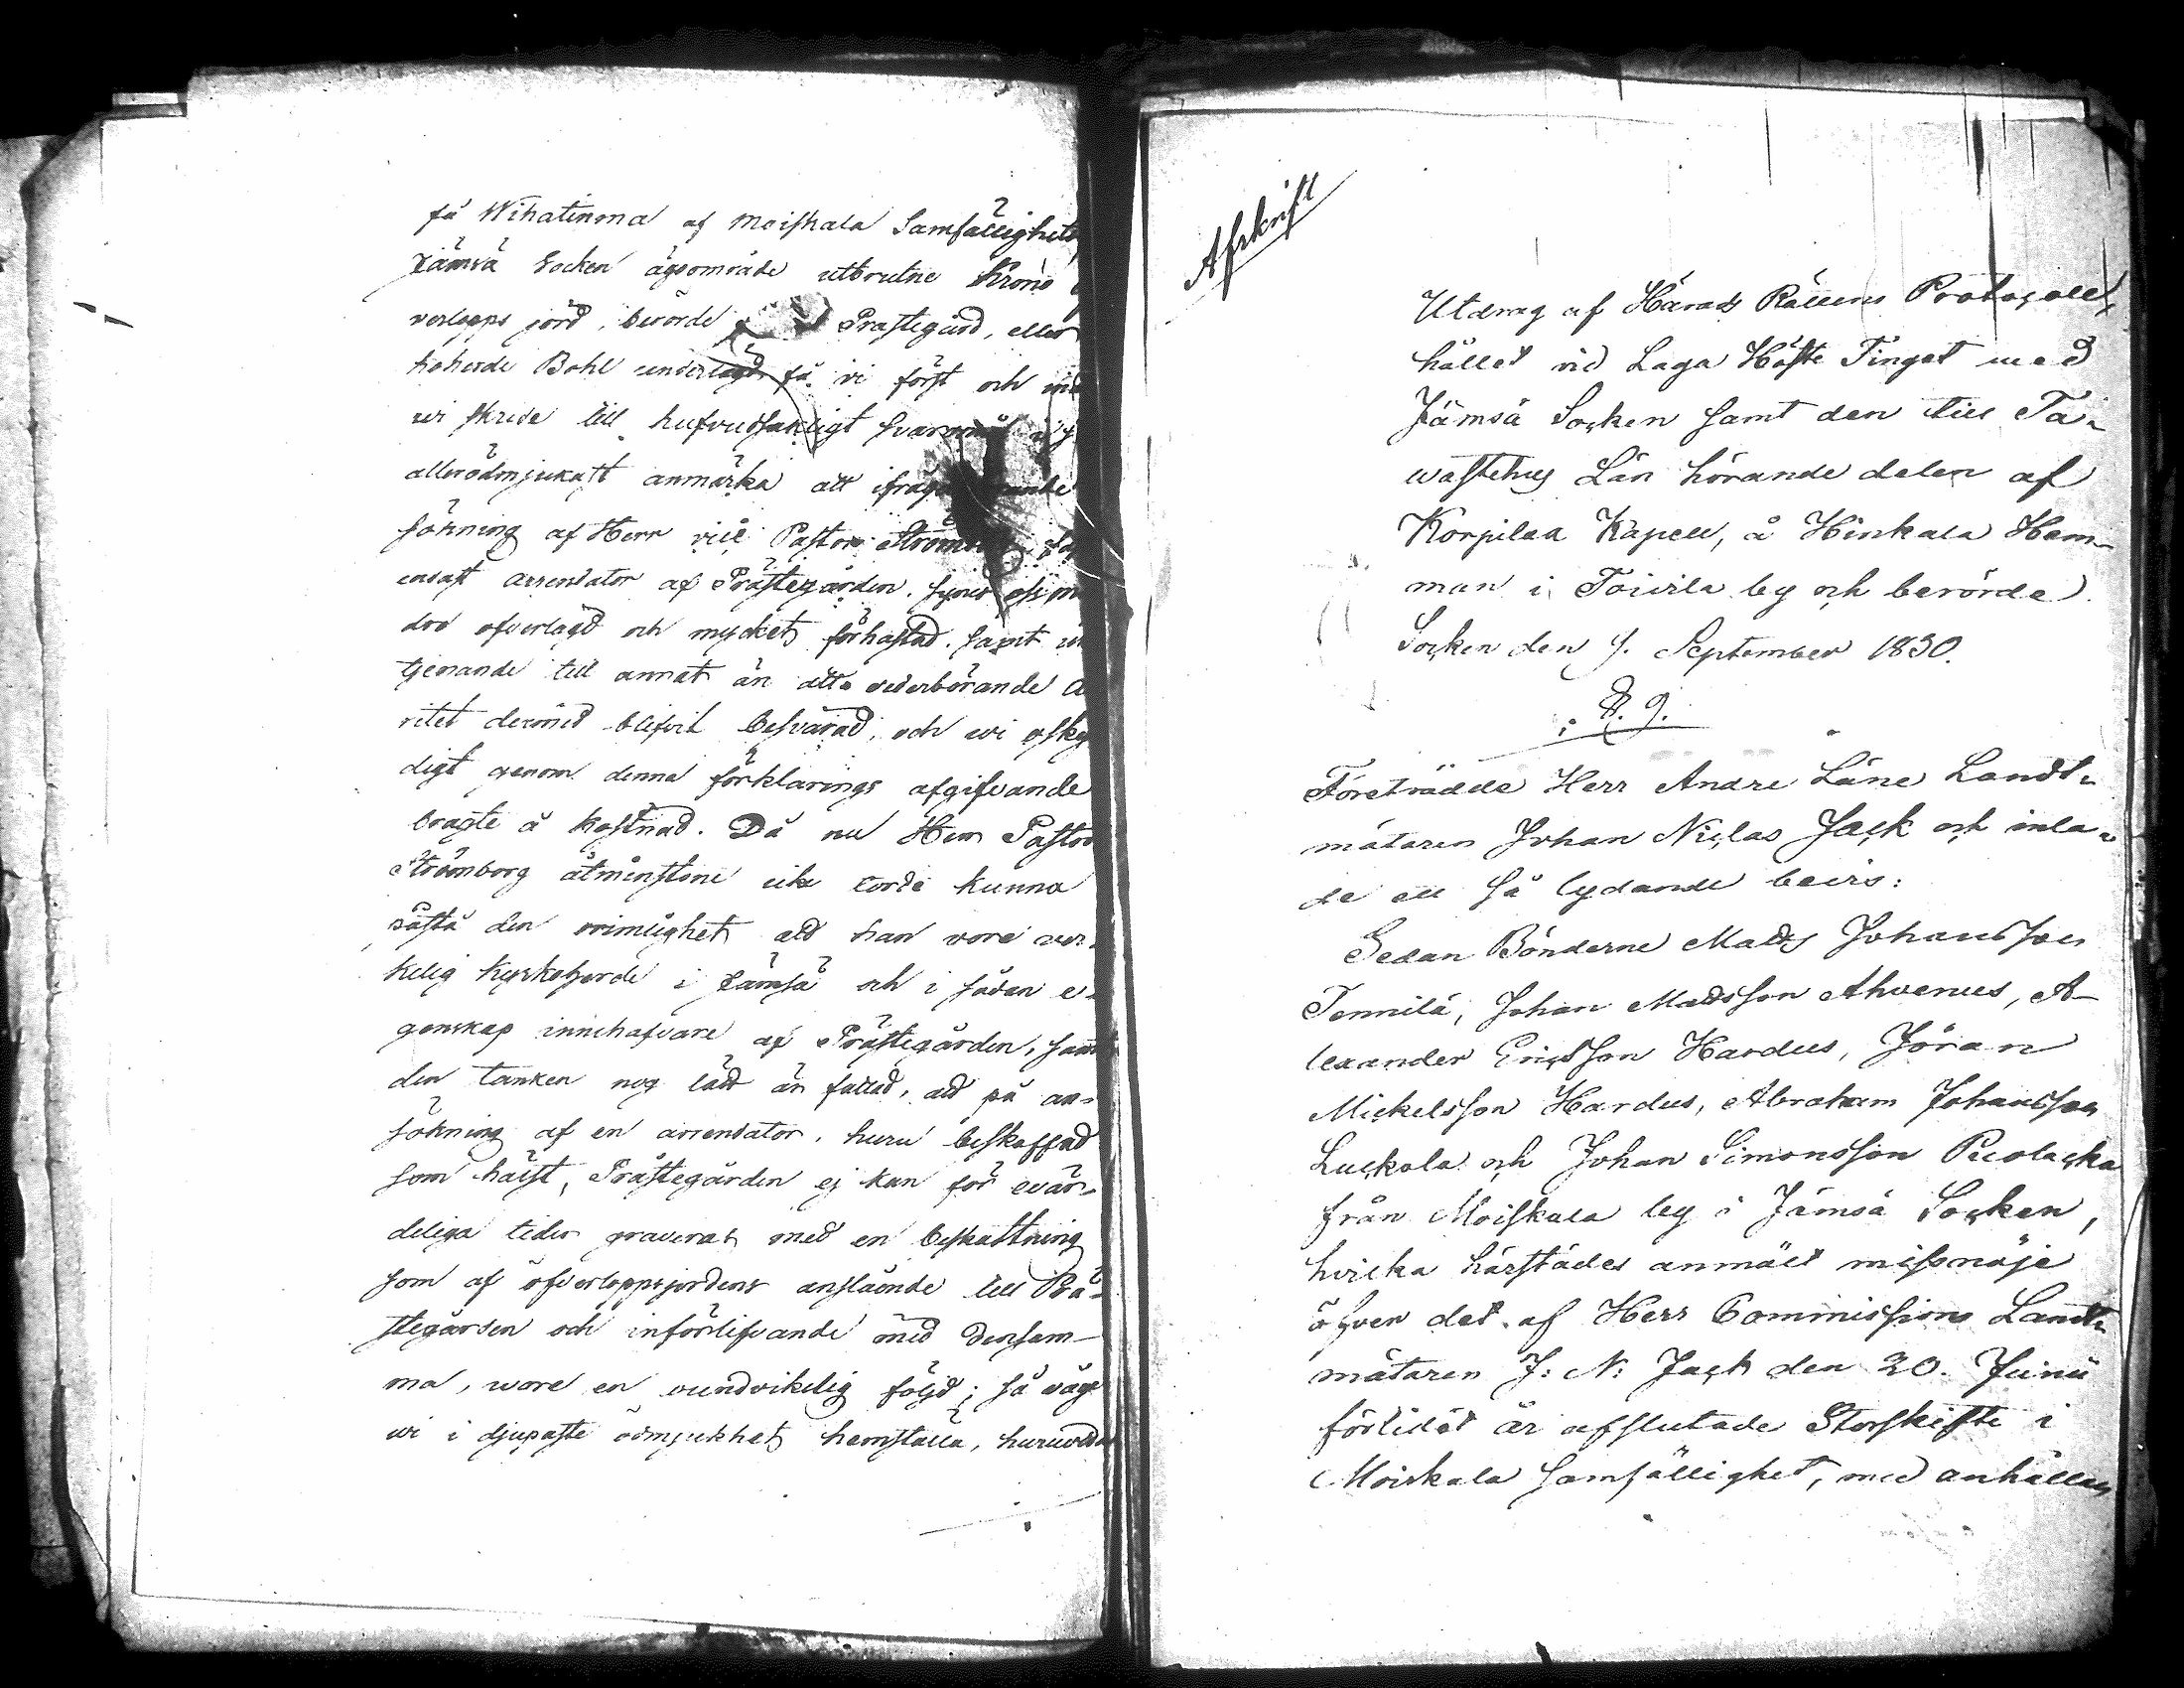 få Wihatinma af Moiskala Samfällighets
Jämsä Socken ägoområde utbrutne Krono
verlopps jord, berörde Prästegård, eller
koherde Bohl underlagd, få vi först och
wi skride till hufvudsakligt svaromål
allerödmjukast anmärka att ifråga
sökning af Herr vice Pastor Strömborg,
endast arrendator af Prästegården, synes
ofverlagd och mycket förhastad, samt
tjenande till annat än att vederbörande
ritet dermed blifvit besvärad, och wi
digt genom denna förklarings afgifvande
bragte å kostnad. Då nu Herr Pastor
Strömborg åtminstone icke torde kunna
påstå den orimlighet att han vore ver-
kelig Kyrkoherde i Jämsä och i sådan e-
genskap innehafvare af Prästegården, samt
den tanken nog lätt än fattad, att på an-
sökning af en arrendator, huru beskaffad
som hälst, Prästegården ej kan för evär-
deliga tider graverat med en beskattning
som af öfverloppsjordens anslående till Prä-
stegården och införlifvande med densam-
ma, wore en oundvikelig följd; så våge
wi i djupaste ödmjukhet hemställa, huruvida
Afskrift
Utdrag af Härads Rättens Protocoll,
hållet vid Laga Höste Tinget med
Jämsä Socken samt den till Ta-
wastehus Län hörande delen af
Korpilax Kapell, å Hinkala Hem-
man i Toivila by och berörde
Socken den 7. September 1830.
§. 9.
Företrädde Herr Andre Läne Landt-
mätaren Johan Niclas Jack och inla-
de ett så lydande bevis:
Sedan Bönderne Mads Johansson
Tennilä, Johan Madsson Ahvenus, A-
lexander Ericsson Hardus, Jöran
Mickelsson Hardus, Abraham Johansson
Luckola och Johan Simonsson Picolacka
från Moiskala by i Jämsä Socken,
hvilka härstädes anmält missnöje
öfver det af Herr Commissions Landt-
mätaren J: N: Jack den 20. Junii
förlidet år afslutade Storskifte i
Moiskala samfällighet, med anhållan